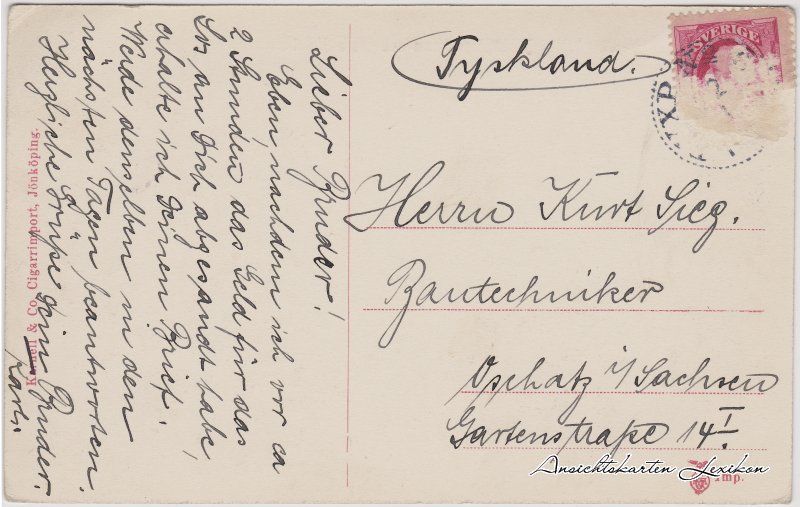 Lieber Bruder!
Eben, nachdem ich vor ca
2 Stunden das Geld für das
Los an Dich abgesandt habe,
erhalte ich Deinen Brief.
Werde denselben in den
nächsten Tagen beantworten.
Herzliche Grüße Dein Bruder
Karl.
Karnell & Co. Cigarrimport, Jönköping.
SVERIGE
Tyskland.
Herrn Kurt Sieg.
Bautechniker
Oschatz i/Sachsen
Gartenstraße 14 I.
Imp.
Ansichtskarten Lexikon